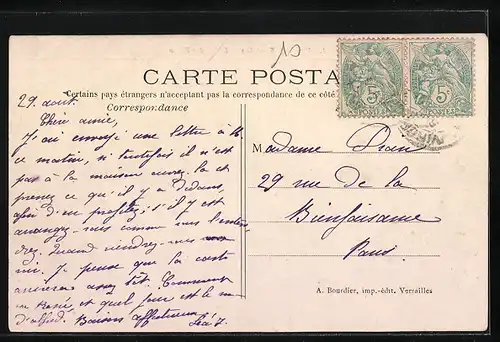 10
CARTE POSTA
Certains pays étrangers n'acceptent pas la correspondance de ce côté
Correspondance
5 5
29 août.
Chère amie,
J'ai envoyé une lettre à
ce matin, si toutefois il n'est
pas à la maison ouvrez la et
prenez ce qu'il y a dedans,
afin d'en profiter; s'il y est
arrangez-vous comme vous l'enten
drez. Quand viendrez-vous
Je pense que la carte
arrivera assez tôt. Comment
va et quel jour est le
d'Alfred. Baisers affectueux
Madame
29 rue de la
Bienfaisance
Paris
A. Bourdier, imp.-édit. Versailles